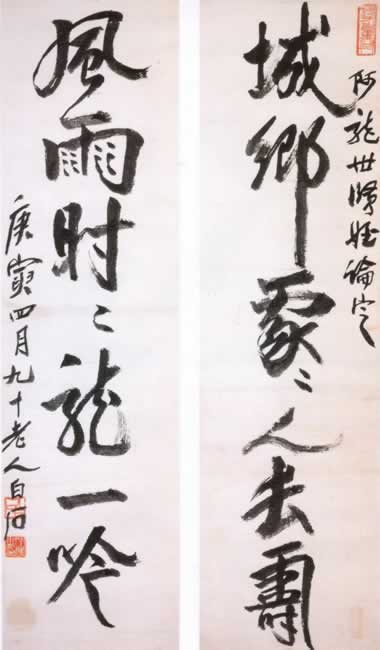 阿龍世姪論定
城鄉處〻人長壽
風雨时〻龍一吟
庚寅四月九十老人白石